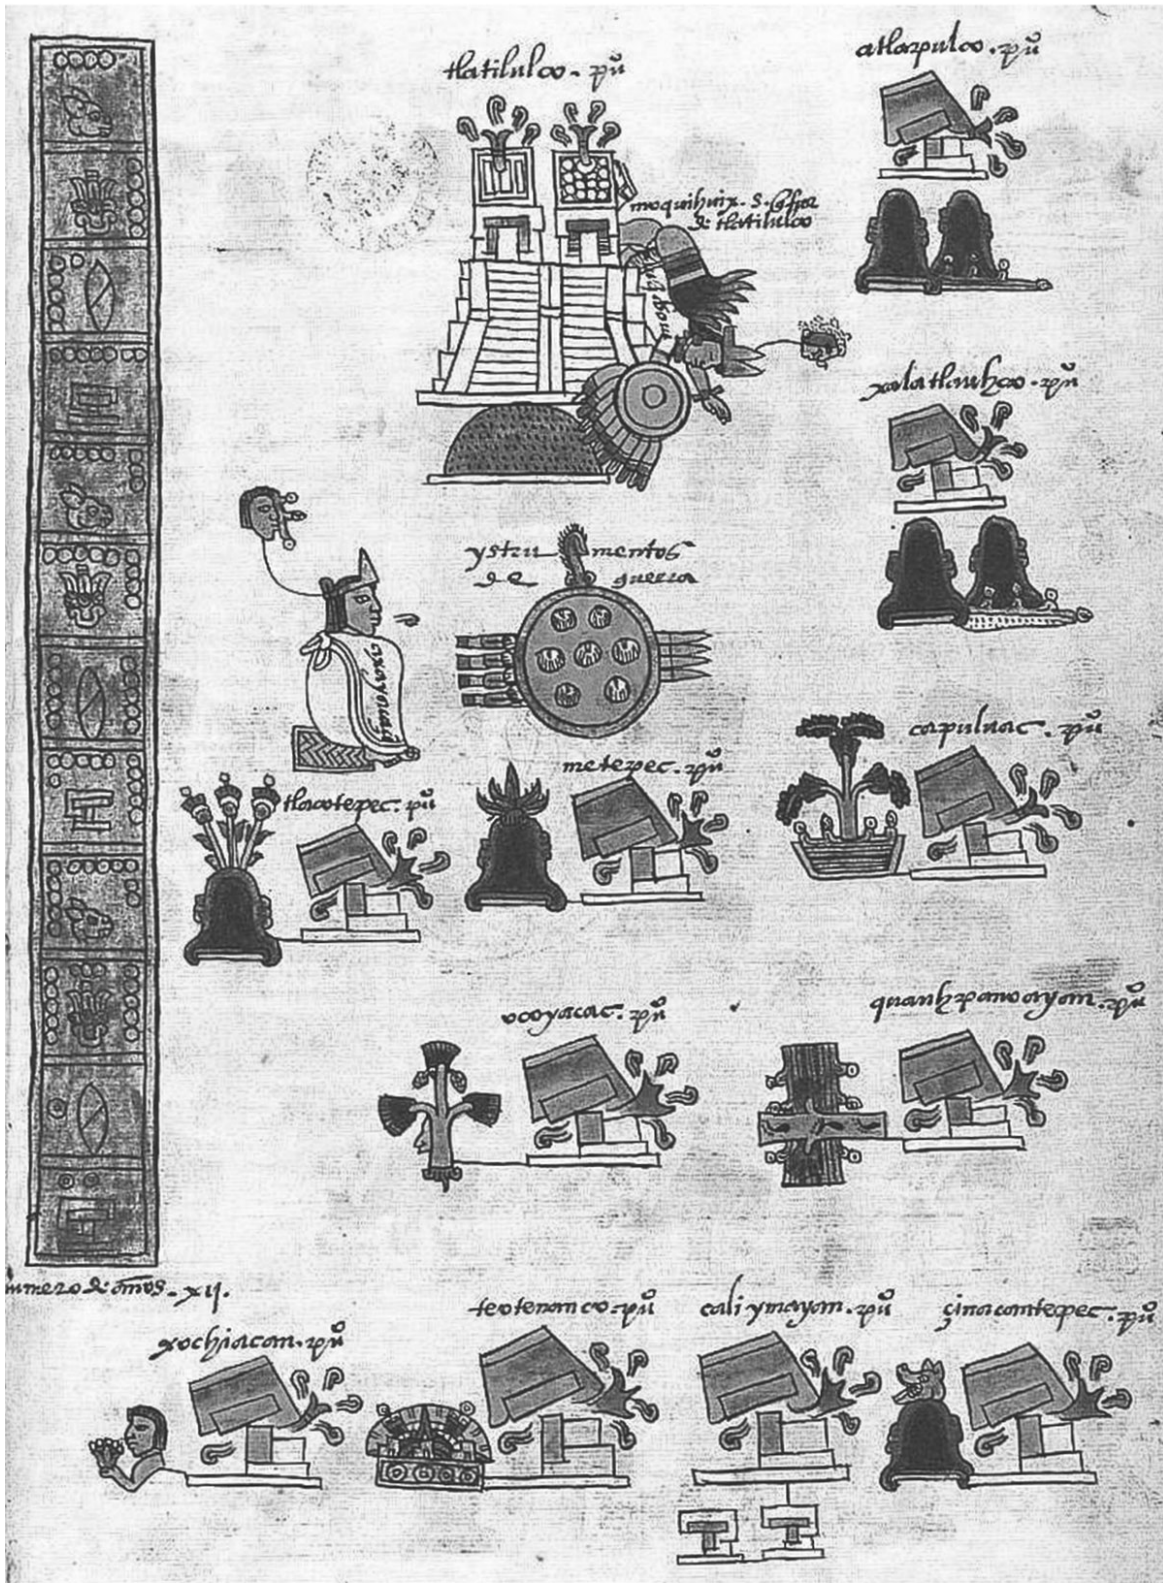 tlatilulco. pũ
atlapulco. pũ
moquihuix. S. Señor
de tlatilulco
moquihuix
xalatlauhco. pũ
ystrumentos
de guerra
axayacaçi
capuluac. pũ
metepec. pũ
tlacotepec. pũ
ocoyacac. pũ
quauhpanoayam. pũ
numero de años. xij.
xochiacam. pũ
teotenamco. pũ
caliymayam. pũ
çinacamtepec. pũ